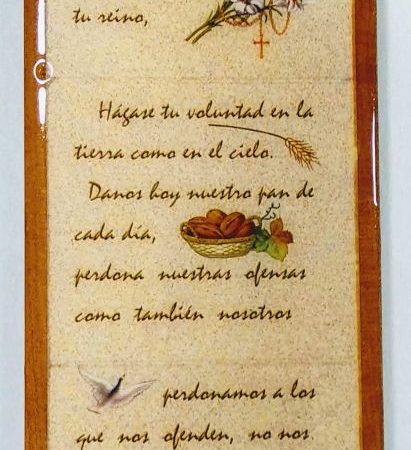 tu reino,
Hágase tu voluntad en la
tierra como en el cielo.
Danos hoy nuestro pan de
cada día,
perdona nuestras ofensas
como también nosotros
perdonamos a los
que nos ofenden, no nos